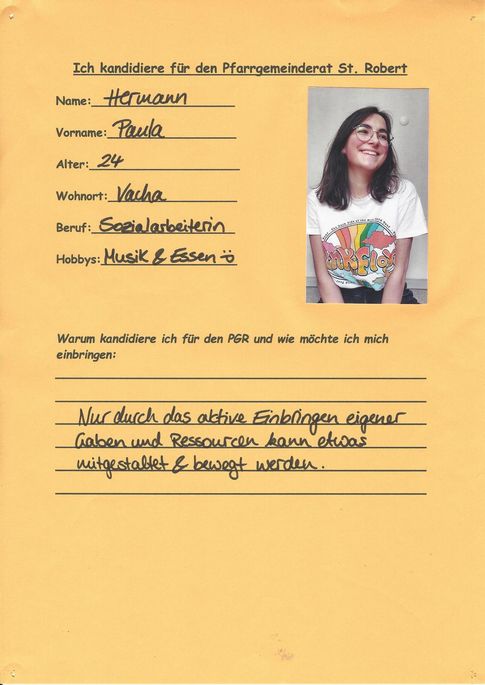 Ich kandidiere für den Pfarrgemeinderat St. Robert
Name: Hermann
Vorname: Paula
Alter: 24
Wohnort: Vacha
Beruf: Sozialarbeiterin
Hobbys: Musik & Essen
Warum kandidiere ich für den PGR und wie möchte ich mich
einbringen:
Nur durch das aktive Einbringen eigener
Gaben und Ressourcen kann etwas
mitgestaltet & bewegt werden.